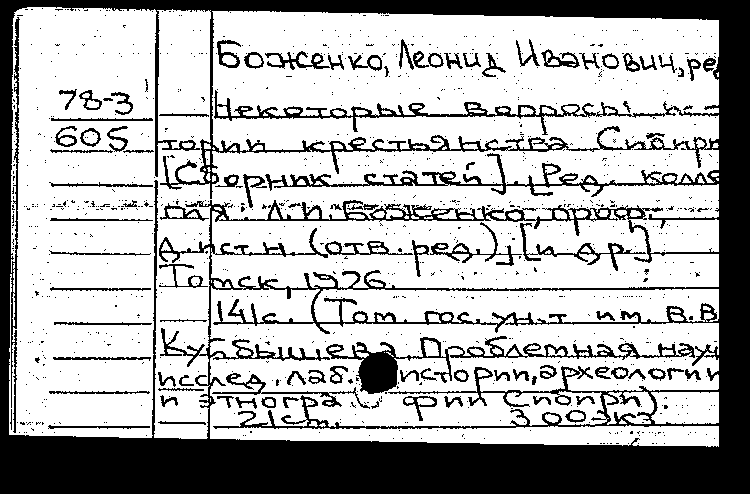 Боженко, Леонид Иванович, ред
78-3 Некоторые вопросы ис-
605 тории крестьянства Сибири
[Сборник статей]. [Ред. колле
гия: Л.И. Боженко, проф.,
д.ист.н. (отв.ред.),] [и др].
Томск, 1976.
141с. (Том. гос. ун.т им. В.В
Куйбышева. Проблемная науч
исслед. лаб. истории, археологии
и этногра фии Сибири).
21см. 300экз.